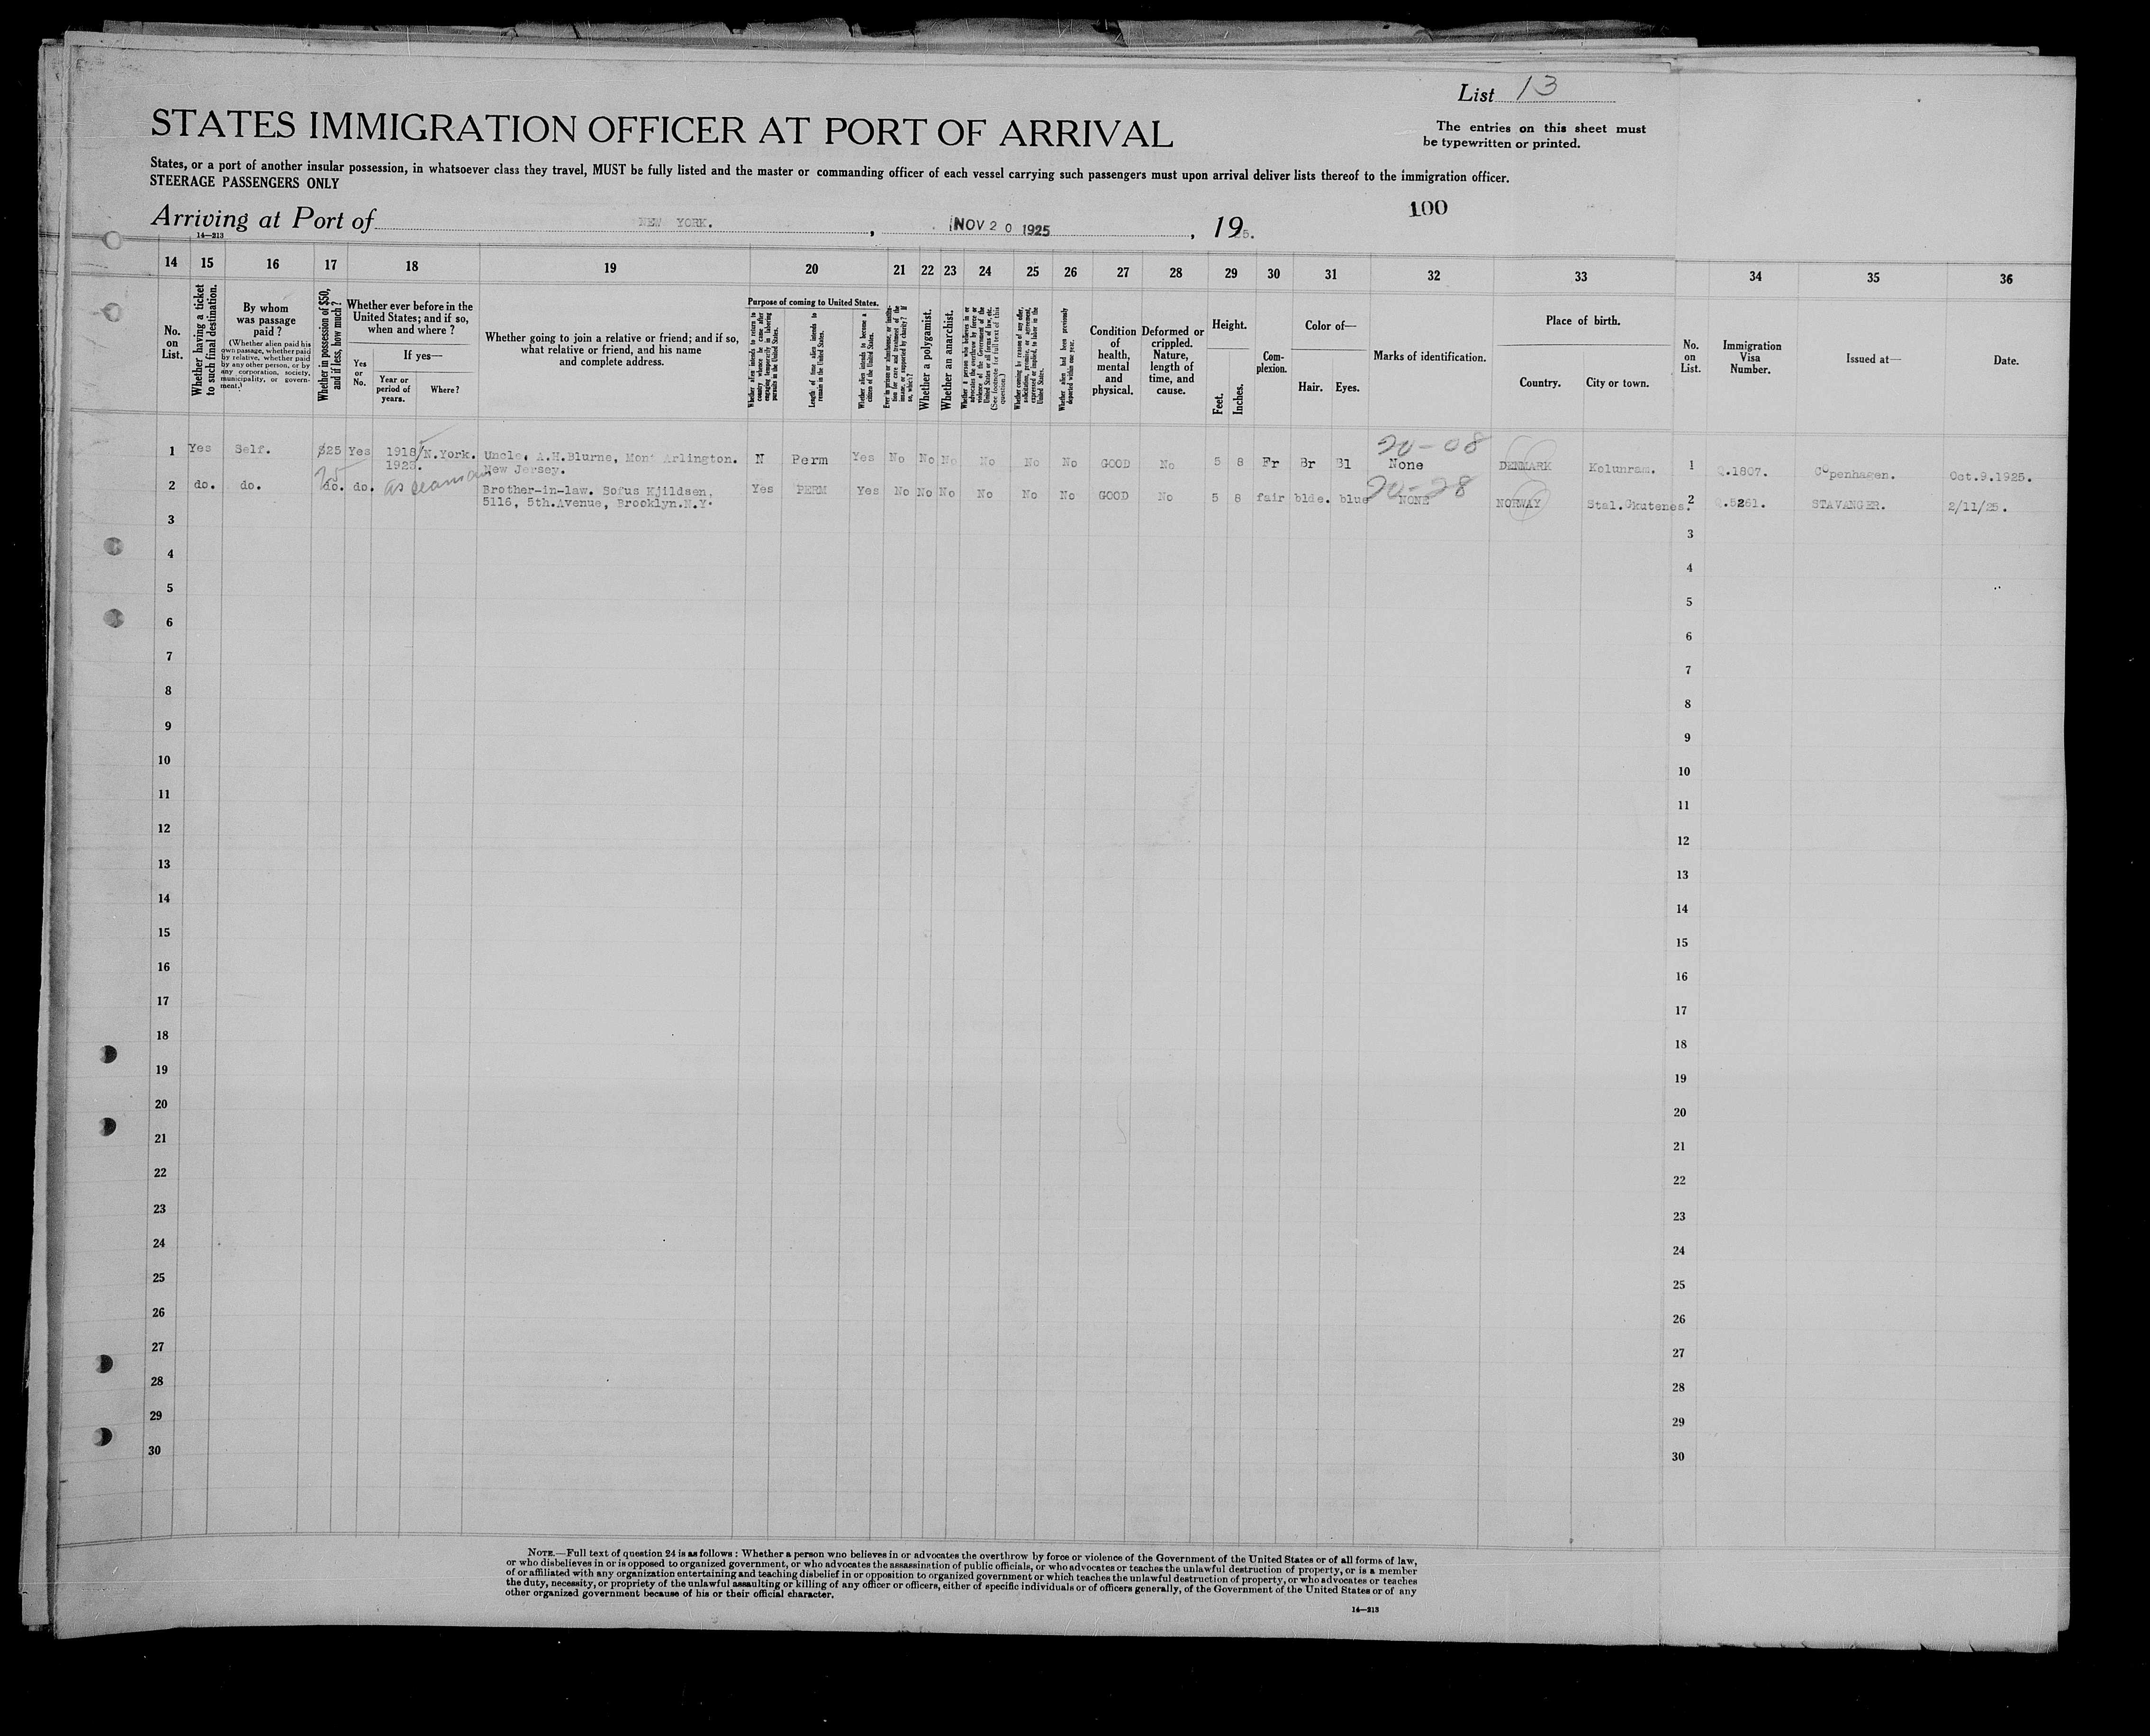 List 13
STATES IMMIGRATION OFFICER AT PORT OF ARRIVAL
The entries on this sheet must
be typewritten or printed.
States, or a port of another insular possession, in whatsoever class they travel, MUST be fully listed and the master or commanding officer of each vessel carrying such passengers must upon arrival deliver lists thereof to the immigration officer.
STEERAGE PASSENGERS ONLY
100
Arriving at Port of NEW YORK. , NOV 20 1925 , 1925.
14—213
14 15 16 17 18 19 20 21 22 23 24 25 26 27 28 29 30 31 32 33 34 35 36
No. on List.
Whether having a ticket to such final destination.
By whom was passage paid?
(Whether alien paid his own passage, whether paid by relative, whether paid by any other person, or by any corporation, society, municipality, or government.)
Whether in possession of $50, and if less, how much?
Whether ever before in the United States; and if so, when and where?
Yes or No.
If yes—
Year or period of years.
Where?
Whether going to join a relative or friend; and if so, what relative or friend, and his name and complete address.
Purpose of coming to United States.
Whether alien intends to return to country whence he came after engaging temporarily in laboring pursuits in the United States.
Length of time alien intends to remain in the United States.
Whether alien intends to become a citizen of the United States.
Ever in prison or almshouse, or institution for care and treatment of the insane, or supported by charity? If so, which?
Whether a polygamist.
Whether an anarchist.
Whether a person who believes in or advocates the overthrow by force or violence of the Government of the United States or all forms of law, etc. (See footnote for full text of this question.)
Whether coming by reason of any offer, solicitation, promise, or agreement, expressed or implied, to labor in the United States.
Whether alien had been previously deported within one year.
Condition of health, mental and physical.
Deformed or crippled. Nature, length of time, and cause.
Height.
Feet.
Inches.
Complexion.
Color of—
Hair.
Eyes.
Marks of identification.
Place of birth.
Country.
City or town.
No. on List.
Immigration Visa Number.
Issued at—
Date.
20-08
1 Yes Self. $25 Yes 1918/1923. N.York. Uncle, A.H.Blurne, Mont Arlington. New Jersey. N Perm Yes No No No No No No GOOD No 5 8 Fr Br Bl None DENMARK 1 .1807. Copenhagen. Oct.9.1925.
25
20-28
2 do. do. do. do. as seaman Brother-in-law. Sofus Kjildsen, 5116, 5th.Avenue, Brooklyn.N.Y. Yes PERM Yes No No No No No No GOOD No 5 8 fair blde. blue NONE NORWAY 2 .5261. STAVANGER. 2/11/25.
3 3
4 4
5 5
6 6
7 7
8 8
9 9
10 10
11 11
12 12
13 13
14 14
15 15
16 16
17 17
18 18
19 19
20 20
21 21
22 22
23 23
24 24
25 25
26 26
27 27
28 28
29 29
30 30
NOTE.—Full text of question 24 is as follows: Whether a person who believes in or advocates the overthrow by force or violence of the Government of the United States or of all forms of law,
or who disbelieves in or is opposed to organized government, or who advocates the assassination of public officials, or who advocates or teaches the unlawful destruction of property, or is a member
of or affiliated with any organization entertaining and teaching disbelief in or opposition to organized government or which teaches the unlawful destruction of property, or who advocates or teaches
the duty, necessity, or propriety of the unlawful assaulting or killing of any officer or officers, either of specific individuals or of officers generally, of the Government of the United States or of any
other organized government because of his or their official character.
14—213